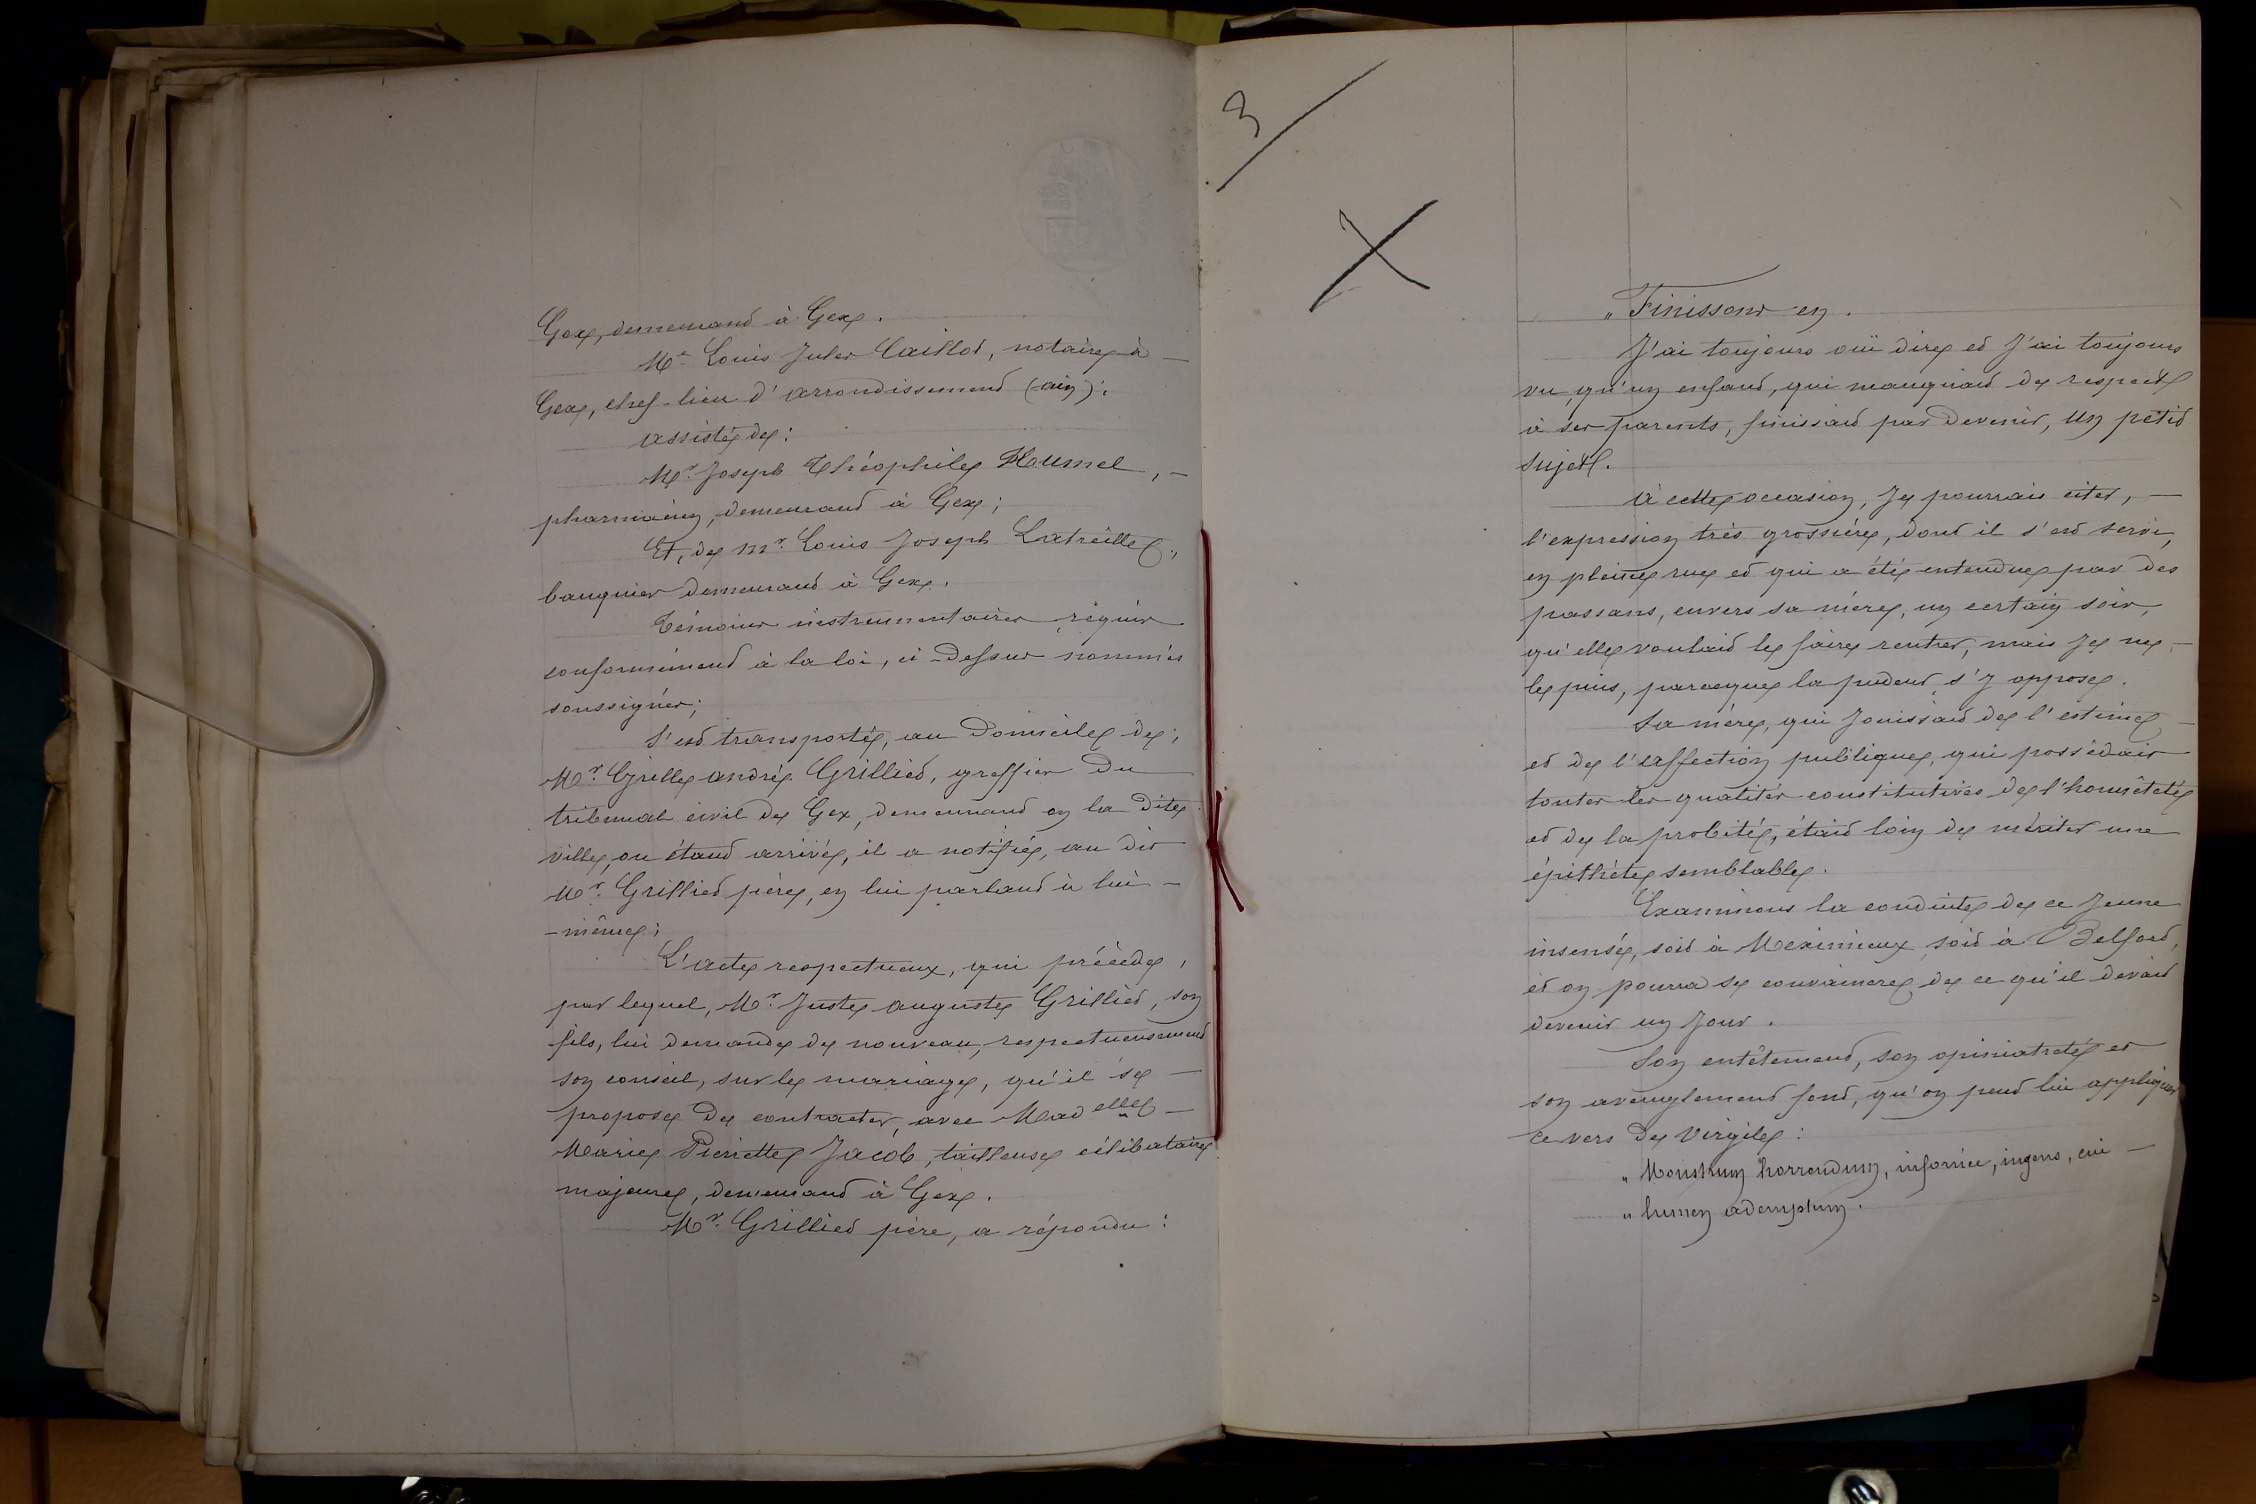 Gex, demeurant à Gex.
Me Louis Jules Caillot, notaire à —
Gex, chef-lieu d'arrondissement (ain);
assisté de:
Mr. Joseph Théophile Humel, —
pharmacien, demeurant à Gex;
Et, de mr. Louis Joseph Latreille,
banquier demeurant à Gex.
Témoins instrumentaires requis
conformément à la loi, ci-dessus nommés
soussignés;
S'est transporté, au Domicile de;
Mr. Cyrille andré Grilliet, greffier Du
tribunal civil de Gex, demeurant en la dite
ville, ou étant arrivé, il a notifié, au dit
Mr. Grilliet père, en lui parlant à lui —
-même;
L'acte respectueux, qui précède,
par lequel, Mr. Juste auguste Grilliet, son
fils, lui demande de nouveau, respectueusement
son conseil, sur le mariage, qu'il se —
propose De contracter, avec Mad elle —
Marie Pierrette Jacob, tailleuse célibataire
majeure, demeurant à Gex.
Mr. Grilliet père, a répondu:
3
„ Finissons en.
J'ai toujours ouï dire et J'ai toujours
vu, qu'un enfant, qui manquait de respect
à ses parents, finissait par Devenir, Un petit
sujet.
à cette occasion, Je pourrais citer, —
l'expression très grossière, dont il s'est servi,
en pleine rue et qui a été entendue par des
passans, envers sa mère, un certain soir,
qu'elle voulait le faire rentrer, mais Je ne —
le puis, parceque la pudeur s'y oppose.
Sa mère, qui Jouissait de l'estime —
et de l'affection publique, qui possédait
toutes les qualités constitutives de l'honnêteté
et de la probité, était loin de mériter une
épithète semblable.
Examinons la conduite de ce Jeune
insensé, soit à Meximieux soit à Belfort,
et on pourra se convaincre de ce qu'il devait
devenir un Jour.
Son entêtement, son opiniatreté et
son aveuglement font, qu'on peut lui appliquer
ce vers De Virgile:
„ Monstrum horrendum, informe, ingens, cui —
„ lumen ademptum.